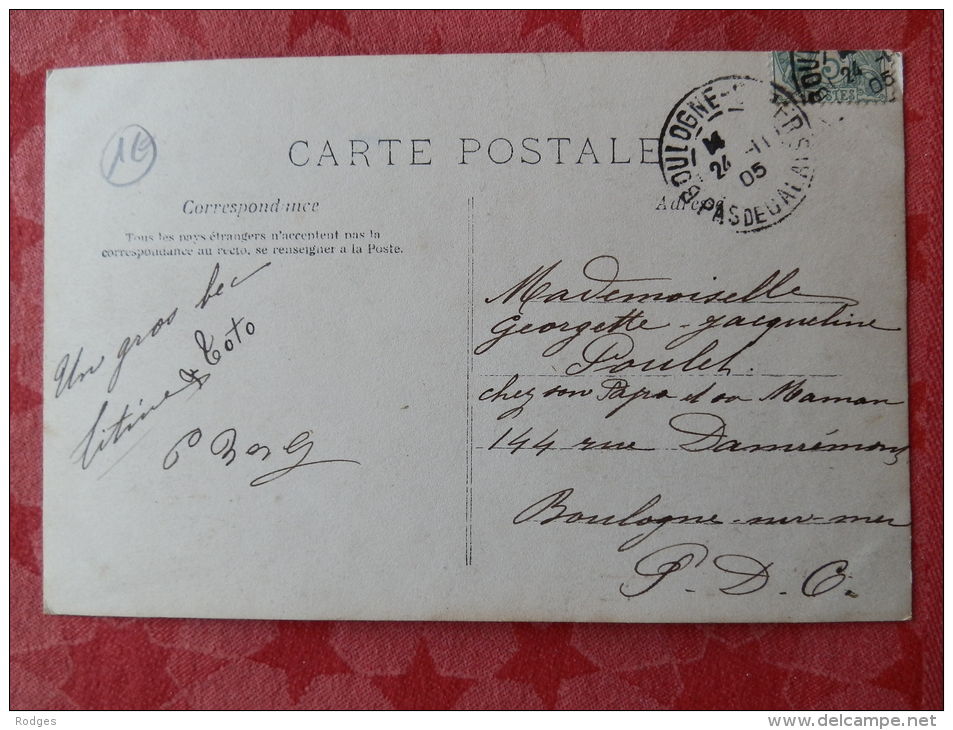 1€
CARTE POSTALE
Correspondance
Tous les pays étrangers n'acceptent pas la
correspondance au recto, se renseigner a la Poste.
Un gros bec
Titine & Toto
Adresse
BOULOGNE-S-MER
24 -11
05
PAS DE CALAIS
5
POSTES
BOU
24
05
Mademoiselle
Georgette-Jacqueline
Poulet.
chez son Papa et sa Maman
144 rue Damrémont
Boulogne-sur-mer
P. D. C.
Rodges
http://www.delcampe.net